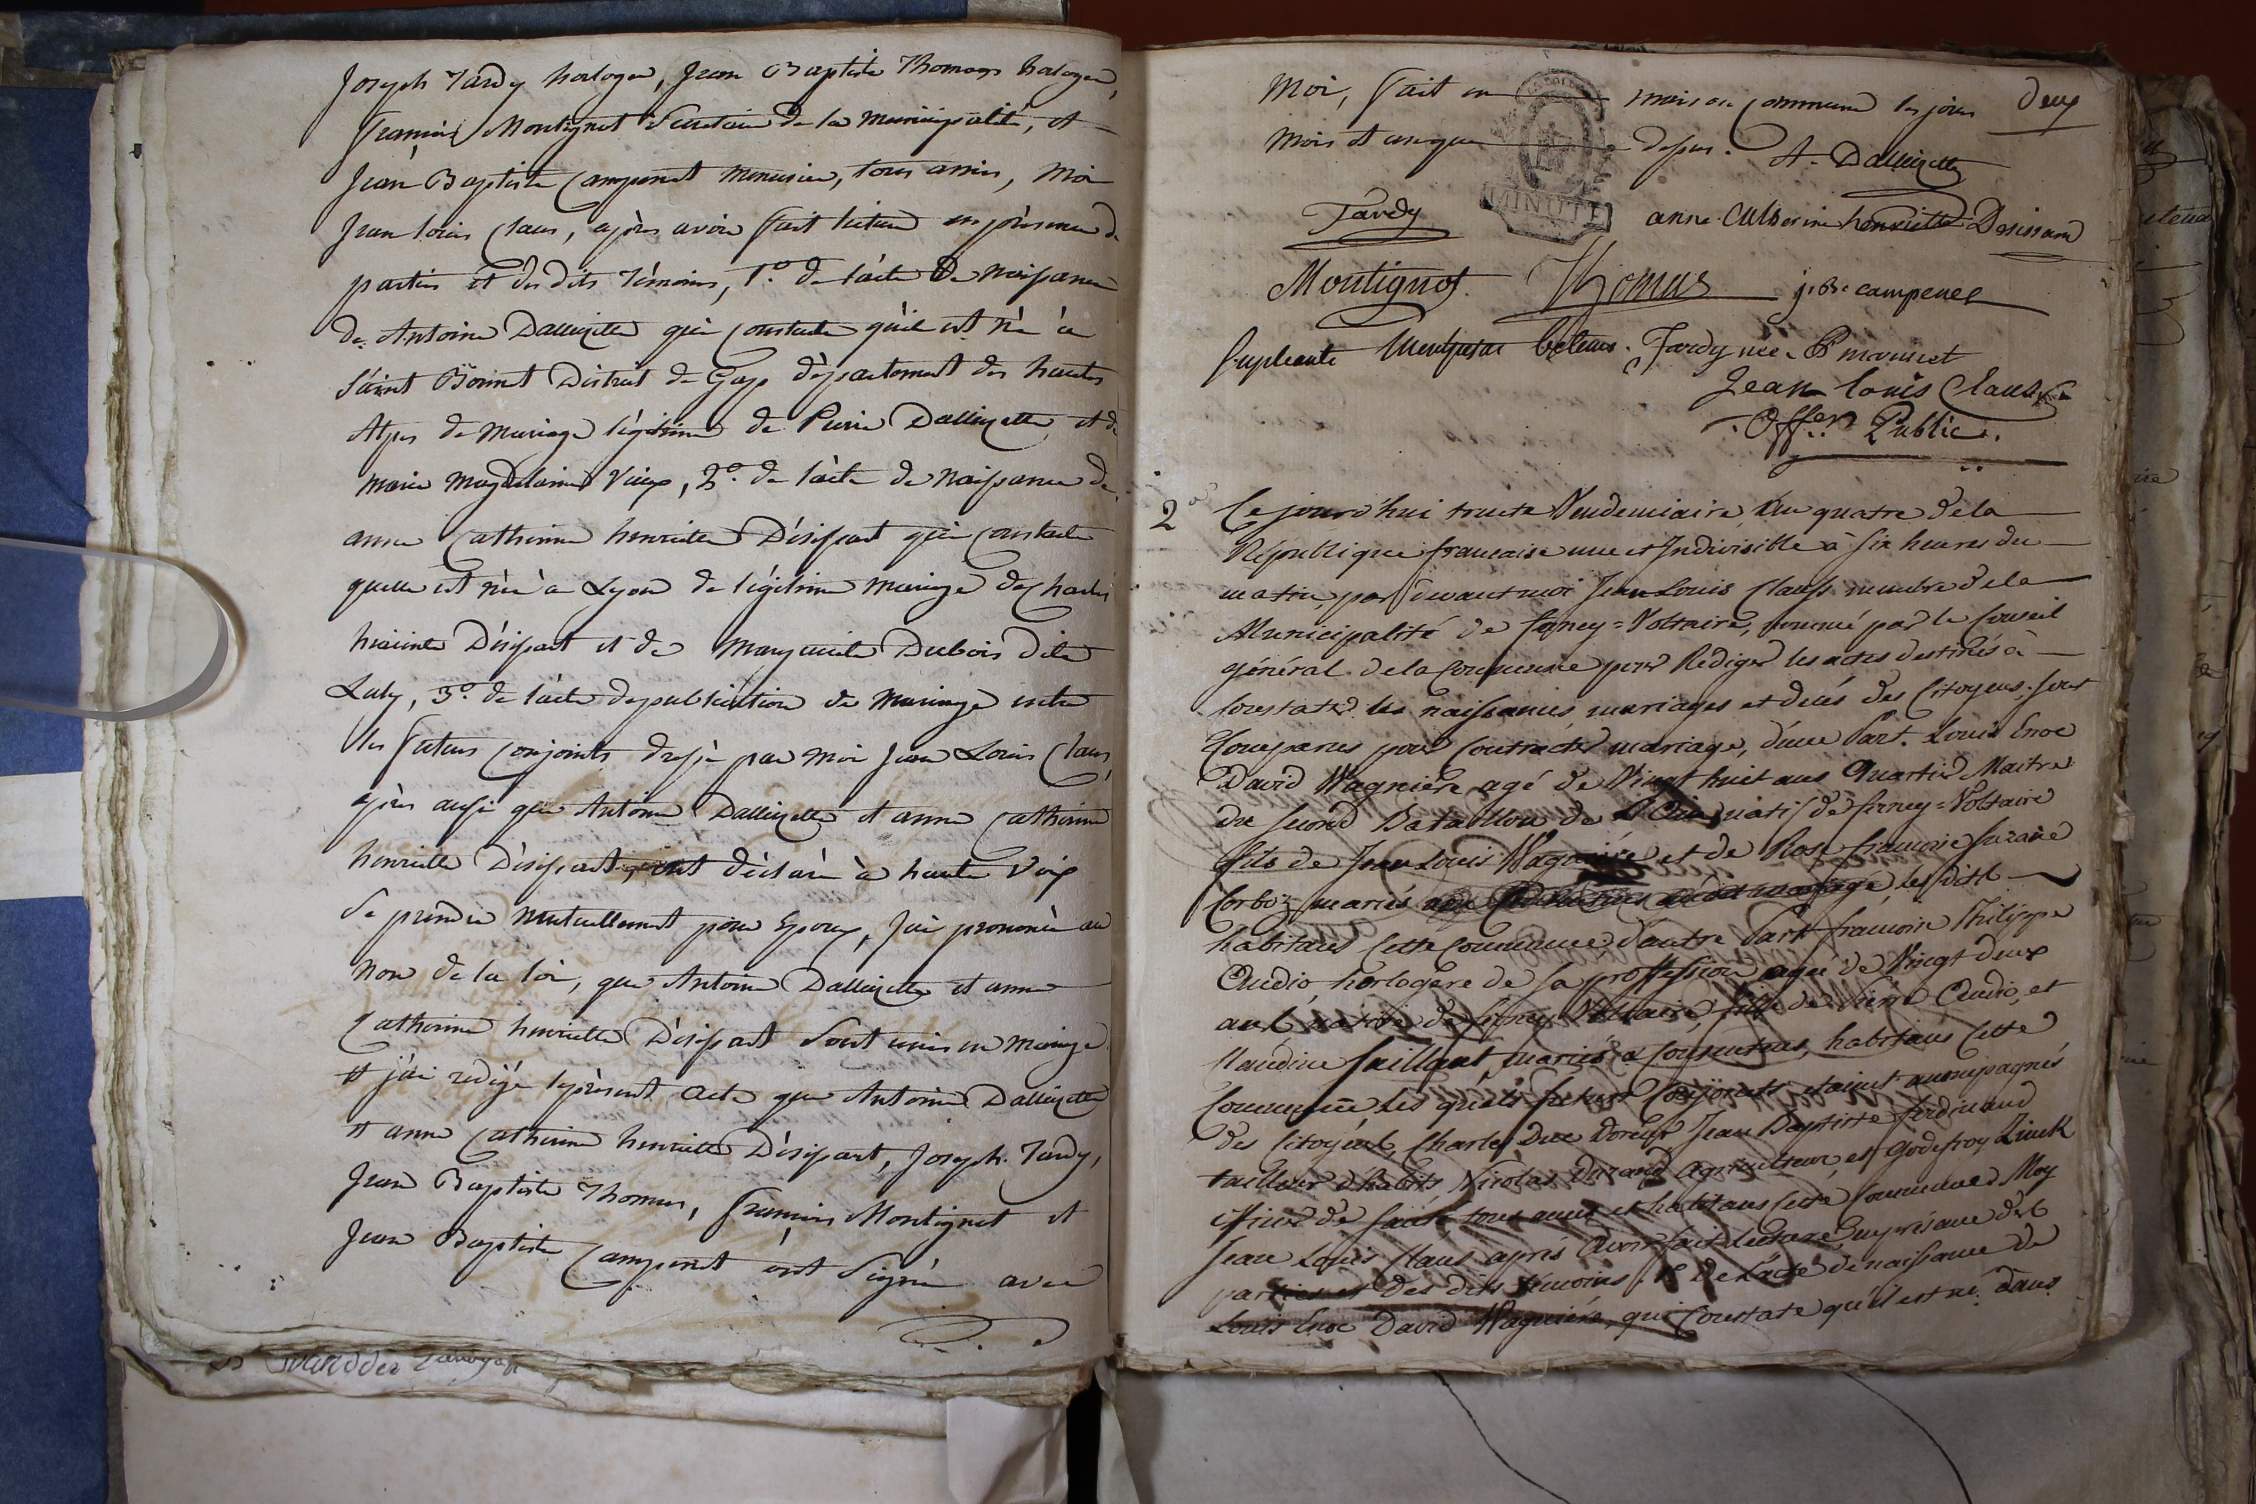 Joseph Tardy horloger, Jean Baptiste Thomas horloger,
François Montignot Secretaire de la municipalité, et
Jean Baptiste Campenet menuisier, tous amis, moi
Jean louis Claus, après avoir fait lecture en présence de
parties et des dits témoins, 1.° de l'acte de naissance
de Antoine Dallizette qui constate qu'il est né à
Saint Bonnet District de Gap département des hautes
Alpes de mariage légitime de Pierre Dallizette et de
marie magdelaine Vieux, 2.° de l'acte de naissance de
anne Catherine henriette Désissart qui constate
quelle est née à Lyon de légitime mariage de Charles
hiacinte Désissart et de Marguerite Dubois dite
Luly, 3.° de l'acte de publication de mariage entre
les futurs conjoints dressé par moi Jean Louis Claus,
après aussi que Antoine Dallizette et anne Catherine
henriette Désissart, ont déclaré à haute Voix
Se prendre mutuellement pour Epoux, J'ai prononcé au
nom de la loi, que Antoine Dallizette et anne
Catherine henriette Désissart Sont unis en mariage
et j'ai redigé le présent acte que Antoine Dallizette
et anne Catherine henriette Désissart, Joseph Tardy,
Jean Baptiste Thomas, François Montignot et
Jean Baptiste Campenet ont Signé avec
Moi, fait en maison commune les jour deux
mois et an que dessus. A. Dallizette
MINUTE
Tardy anne Catherine henriette Desissard
Montignot Thomas j. b.te campenet
Tardy née
Jean louis Clauss
Off.er Public.
2° Ce jourd'hui trente Vendemiaire, l'an quatre de la
République francaise une et Indivisible à six heures du
matin, par devant moi Jean Louis Clauss membre de la
Municipalité de ferney=Voltaire, nommé par le Conseil
général de la Commune pour Rediger les actes destinés à
Constater les naissances, mariages et décés des Citoyens, sont
Comparus pour Contracter mariage, d'une Part. Louis Enoc
David Wagniere agé de Vingt huit ans Quartier Maitre
du second Bataillon de l'Ain, natif de ferney=Voltaire
fils de Jean Louis Wagniere et de Rose francoise suzanne
Corboz mariés les dits
habitans Cette Commune d'autre Part francoise Philippe
Audio, horlogere de sa proffession agée de Vingt deux
ans, native de ferney Voltaire, fille de Pierre Audio, et
Claudine Saillant, mariés à habitans Cette
Commune les quels futurs Conjoints etaient accompagnés
des Citoyens, Charles Duc Doreur Jean Baptiste ferdinand
tailleur d'habits, Nicolas Durand agriculteur, et Godefroy Zinck
officier de santé, tous amis et habitans Cette Commune Moy
Jean Louis Claus après avoir fait lecture En présance des
parties et des dits temoins 1.° De L'acte de naissance de
Louis Enoc David Wagniere, qui Constate qu'il est né dans